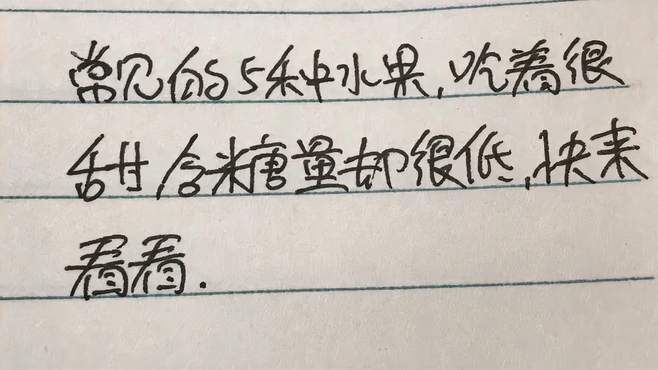 常见的5种水果,吃着很
甜,含糖量却很低,快来
看看.